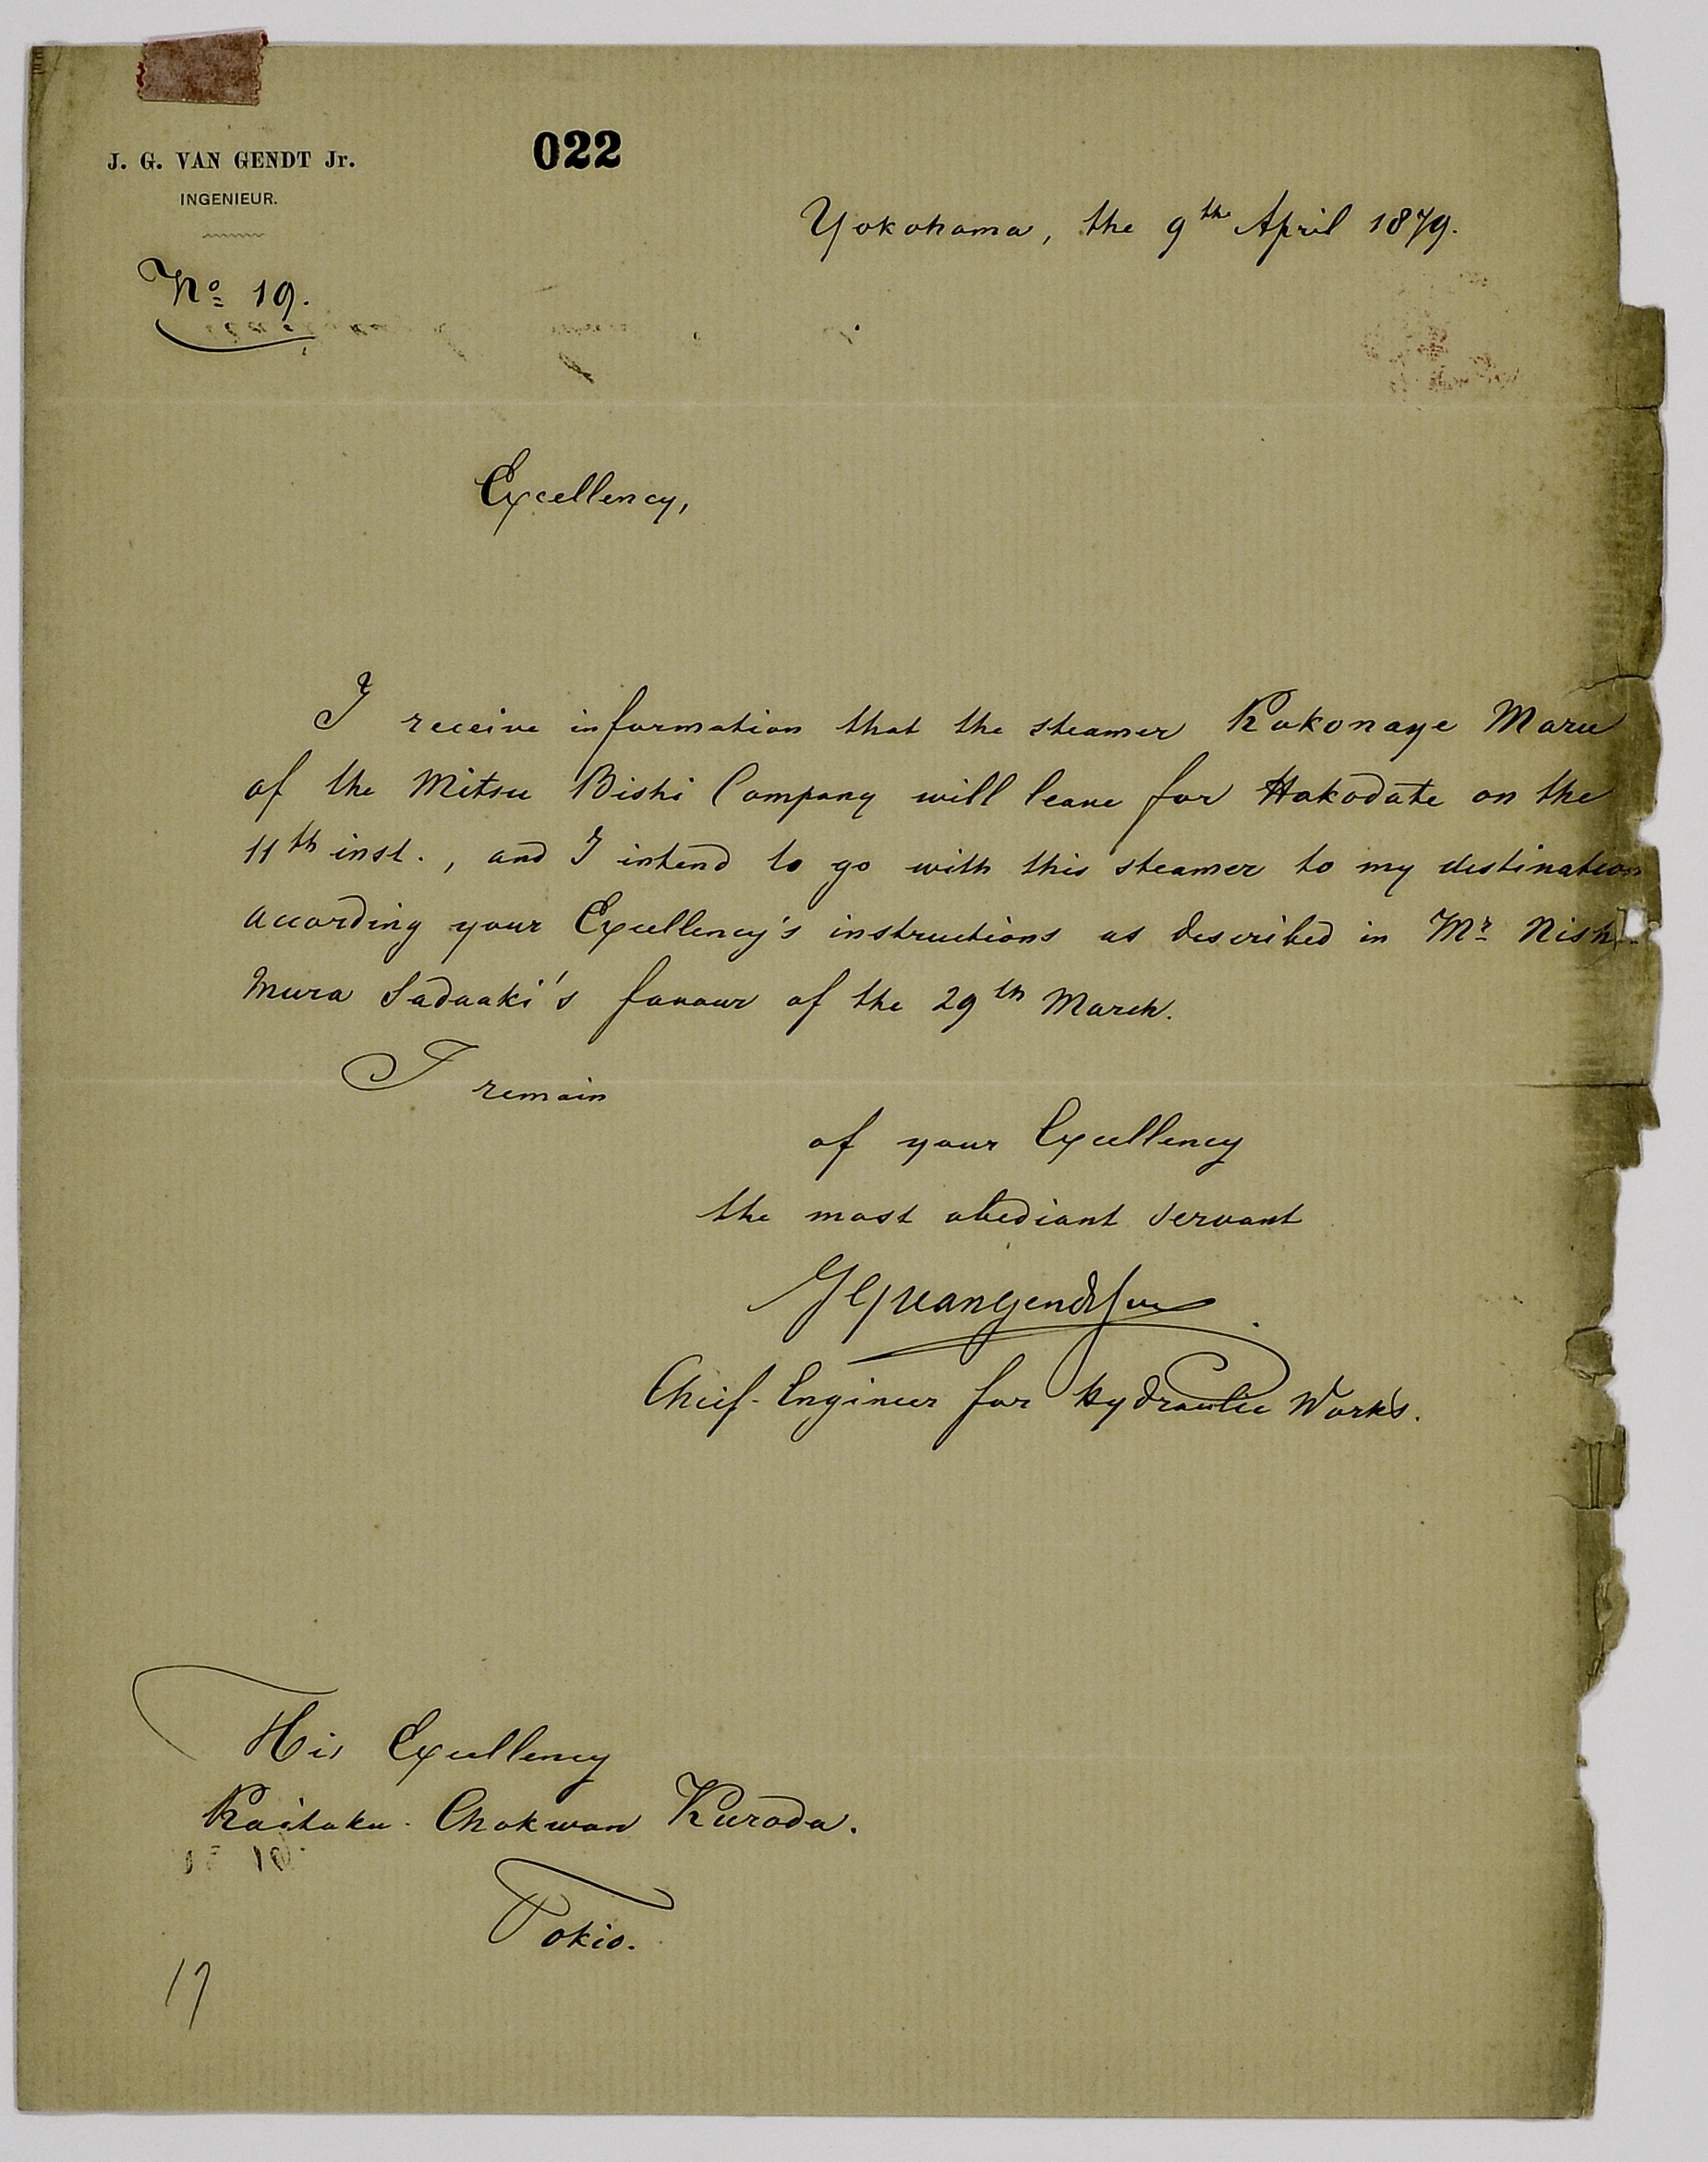 J. G. VAN GENDT Jr.
INGENIEUR.
022
Yokohama, the 9th April 1879.
No 19.
Excellency,
I receive information that the steamer Kokonaye Maru
of the Mitsu Bishi Company will leave for Hakodate on the
11th inst., and I intend to go with this steamer to my destination
according your Excellency's instructions as described in Mr Nishi-
mura Sadaaki's favour of the 29th March.
I remain
of your Excellency
the most obediant servant
JGvanGendtJr
Chief-Engineer for Hydraulic Works.
His Excellency
Kaitaku-Chokwan Kuroda.
Tokio.
17